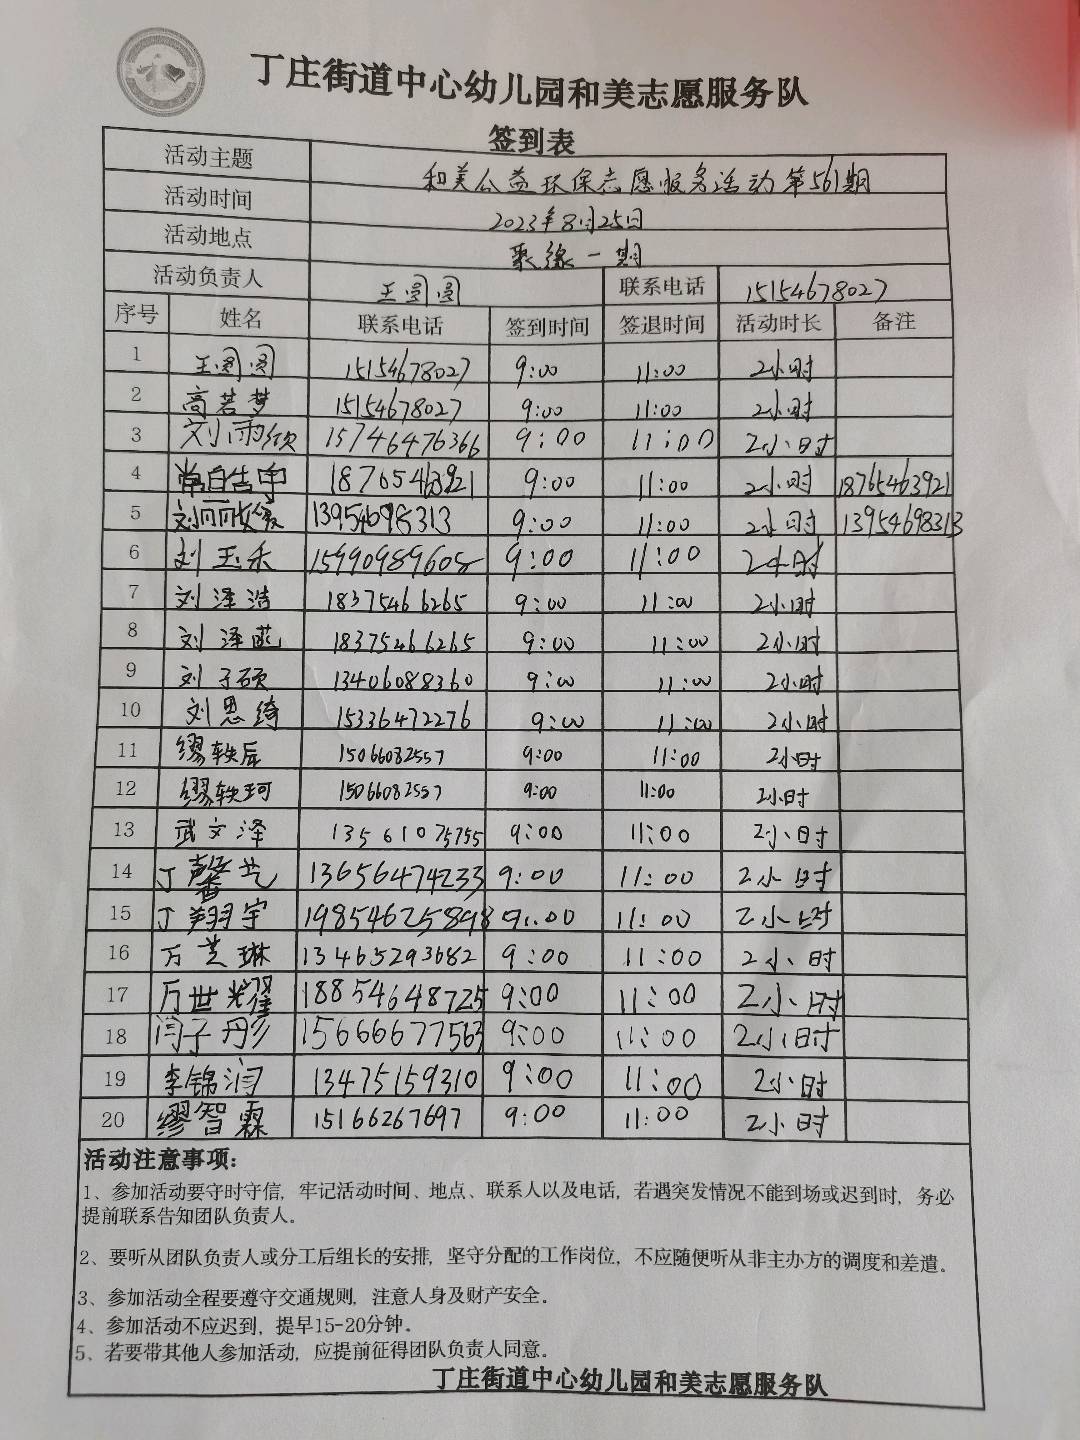 丁庄街道中心幼儿园和美志愿服务队
签到表
活动主题 和美公益环保志愿服务活动第561期
活动时间 2023年8月25日
活动地点 聚缘一期
活动负责人 王圆圆 联系电话 15154678027
序号 姓名 联系电话 签到时间 签退时间 活动时长 备注
1 王圆圆 15154678027 9:00 11:00 2小时
2 高若梦 15154678027 9:00 11:00 2小时
3 刘雨欣 15746476366 9:00 11:00 2小时
4 18765463921 9:00 11:00 2小时 18765463921
5 13954698313 9:00 11:00 2小时 13954698313
6 刘玉禾 15990989605 9:00 11:00 2小时
7 刘泽浩 18375466265 9:00 11:00 2小时
8 刘泽菡 18375466265 9:00 11:00 2小时
9 刘子硕 13406088360 9:00 11:00 2小时
10 刘思绮 15336472276 9:00 11:00 2小时
11 缪轶辰 15066082557 9:00 11:00 2小时
12 缪轶珂 15066082557 9:00 11:00 2小时
13 武文泽 13561075755 9:00 11:00 2小时
14 丁馨艺 13656474233 9:00 11:00 2小时
15 丁翔宇 19854625898 9:00 11:00 2小时
16 万芝琳 13465293682 9:00 11:00 2小时
17 万世耀 18854648725 9:00 11:00 2小时
18 闫子彤 15666677563 9:00 11:00 2小时
19 李锦润 13475159310 9:00 11:00 2小时
20 缪智霖 15166267697 9:00 11:00 2小时
活动注意事项:
1、参加活动要守时守信,牢记活动时间、地点、联系人以及电话,若遇突发情况不能到场或迟到时,务必
提前联系告知团队负责人。
2、要听从团队负责人或分工后组长的安排,坚守分配的工作岗位,不应随便听从非主办方的调度和差遣。
3、参加活动全程要遵守交通规则,注意人身及财产安全。
4、参加活动不应迟到,提早15-20分钟。
5、若要带其他人参加活动,应提前征得团队负责人同意。
丁庄街道中心幼儿园和美志愿服务队